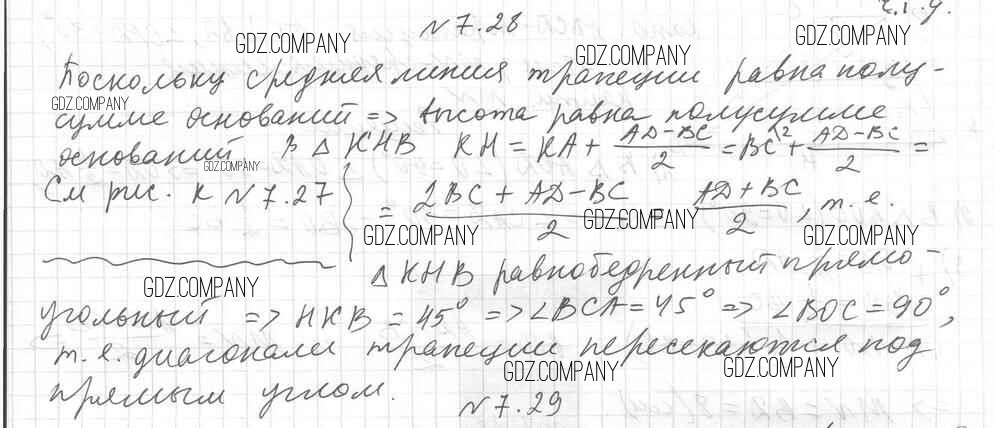 ч.т.д.
N 7.28
GDZ.COMPANY GDZ.COMPANY GDZ.COMPANY
Поскольку средняя линия трапеции равна полу-
GDZ.COMPANY
сумме оснований => высота равна полусумме
оснований В Δ KHB KH = KA + (AD-BC)/2 = BC + (AD-BC)/2 =
GDZ.COMPANY
См рис. к N 7.27 = (2BC + AD-BC)/2 = (AD+BC)/2, т. е.
GDZ.COMPANY GDZ.COMPANY GDZ.COMPANY
Δ KHB равнобедренный прямо-
GDZ.COMPANY
угольный => HKB = 45° => ∠BCA = 45° => ∠BOC = 90°,
т. е. диагонали трапеции пересекаются под
GDZ.COMPANY GDZ.COMPANY
прямым углом.
N 7.29